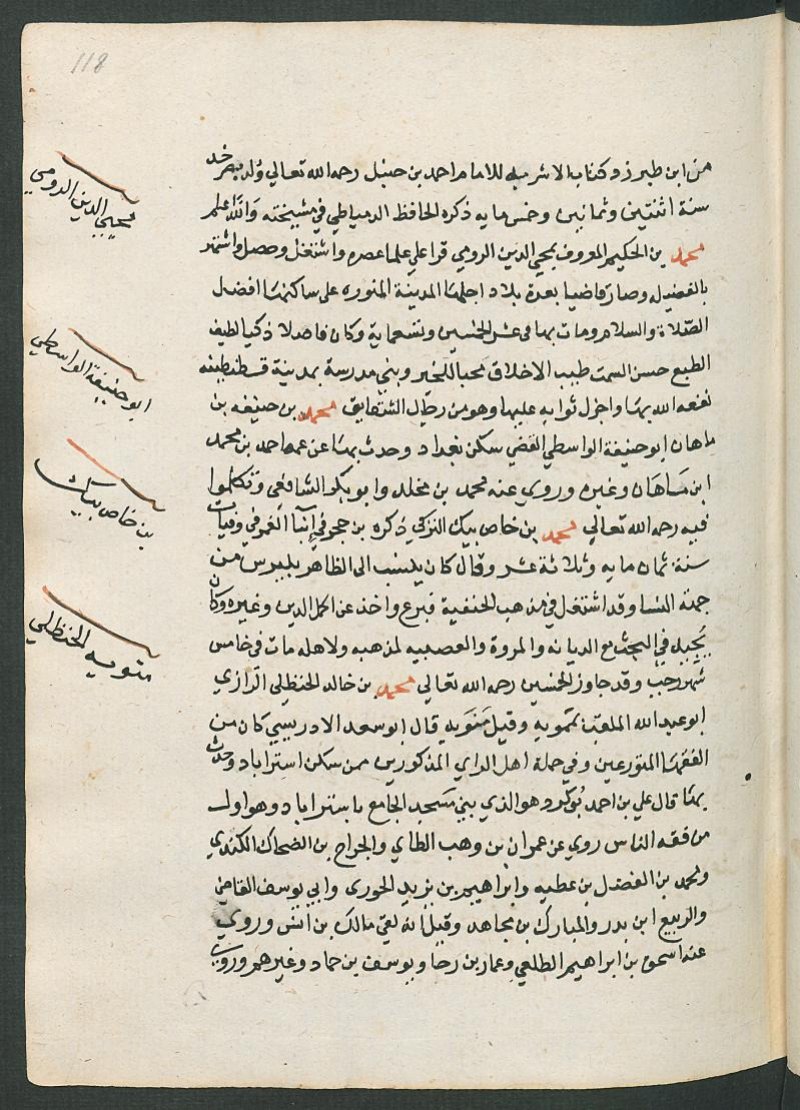 118
من ابن طبرزد كتاب الاشربه للامام احمد بن حنبل رحمه الله تعالي ولد بمصر
سنة اثنتين وثمانين وخمس مايه ذكره الحافظ الدمياطي في مشيخته والله اعلم
محمد بن الحكيم المعروف بمحي الدين الرومي قرا علي علما عصره واشتغل وحصل واشتهر
بالفضيله وصار قاضيا بعدة بلاد اجلها المدينة المنوره على ساكنها افضل
الصلاة والسلام ومات بها في عشر الخمسين وتسعماية وكان فاضلا ذكيا لطيف
الطبع حسن السمت طيب الاخلاق محبا للخير وبني مدرسة بمدينة قسطنطينه
نفعه الله بها واجزل ثوابه عليها وهو من رجال الشقايق محمد بن حنيفه بن
ماهان ابو حنيفة الواسطي سكن بغداد وحدث بها عن عمه احمد بن محمد
ابن ماهان وغيره وروي عنه محمد بن مخلد وابو بكر الشافعي وتكلموا
فيه رحمه الله تعالي محمد بن خاص بيك التركي ذكره بن حجر في انبا الغمر في وفيات
سنة ثمان مايه وثلاثة عشر وقال كان ينسب الى الظاهر بيبرس من
جهة النسا وقد اشتغل في مذهب الحنفية فبرع واخذ عن اكمل الدين وغيره وكان
يجيد في البحث مع الديانه والمروة والعصبيه لمذهبه ولاهله مات في خامس
شهر رجب وقد جاوز الخمسين رحمه الله تعالي محمد بن خالد الحنظلي الرازي
ابو عبد الله الملقب بمتويه وقيل منويه قال ابو سعد الادريسي كان من
الفقها المتورعين وفي جملة اهل الراي المذكورين ممن سكن استراباد وحدث
بها قال علي بن احمد وهو الذي بني مسجد الجامع باستراباد وهو اول
من فقه الناس روي عن عمران بن وهب الطاي والجراح بن الضحاك الكندي
ومحمد بن الفضل بن عطيه وابراهيم بن يزيد الخوزي وابي يوسف القاضي
والربيع ابن بدر والمبارك بن مجاهد وقيل انه لقي مالك بن انس وروي
عنه اسحق بن ابراهيم الطلقي وعمار بن رجا ويوسف بن حماد وغيرهم وروي
محيي الدين الرومي
ابو حنيفة الواسطي
بن خاص بيك
متويه الحنظلي